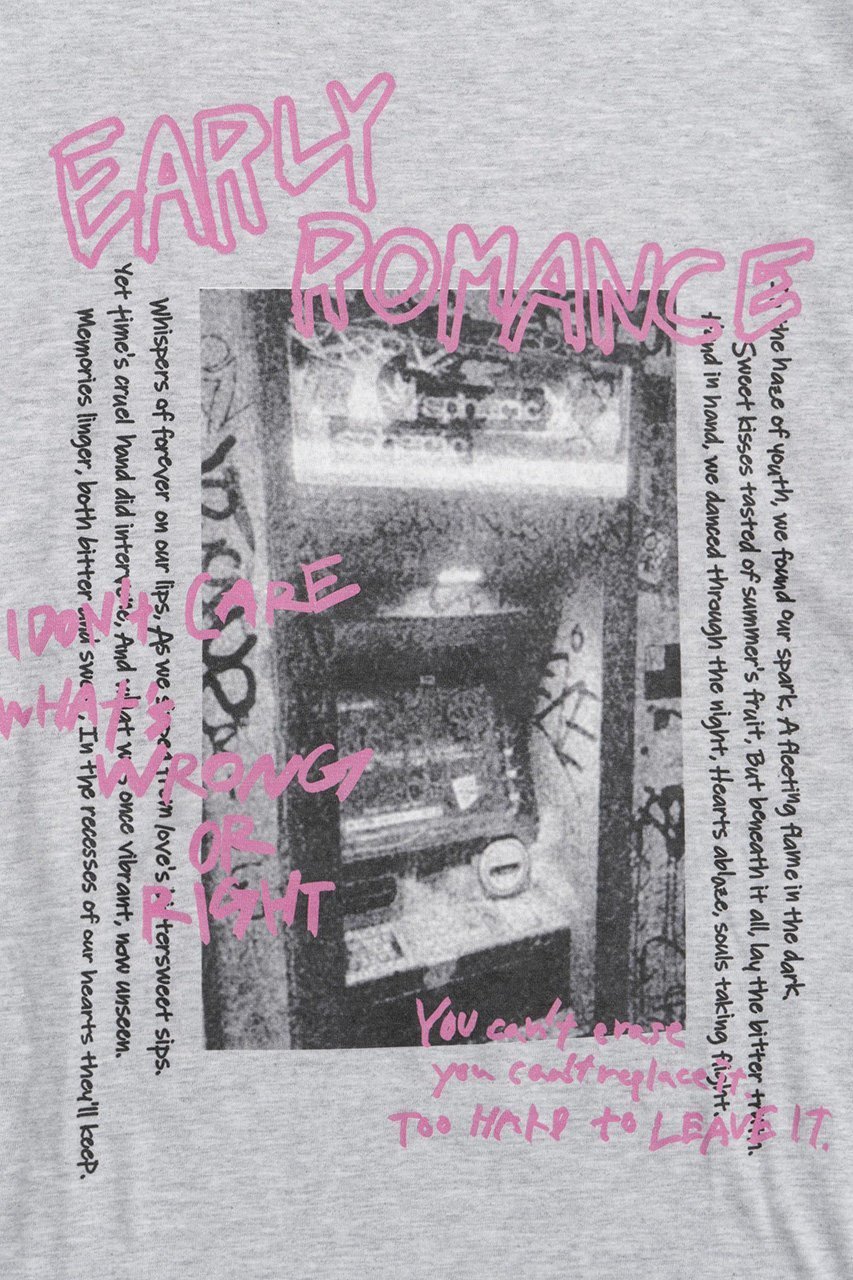 EARLY
ROMANCE
spheric
spheric
the haze of youth, we found our spark, A fleeting flame in the dark,
Sweet kisses tasted of summer's fruit, But beneath it all, lay the bitter truth.
Hand in hand, we danced through the night, Hearts ablaze, souls taking flight.
Whispers of forever on our lips, As we love's bittersweet sips.
Yet time's cruel hand did intervene, And what was once vibrant, now unseen.
Memories linger, both bitter and sweet, In the recesses of our hearts they'll keep.
I DON'T CARE
WHAT'S
WRONG
OR
RIGHT
You can't erase
you can't replace it.
TOO HARD to LEAVE IT.